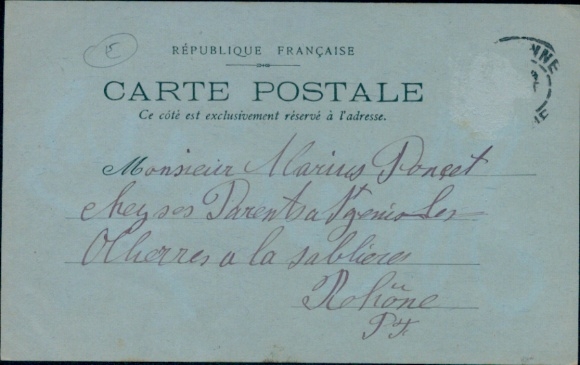 15
RÉPUBLIQUE FRANÇAISE
NNE
CARTE POSTALE
Ce côté est exclusivement réservé à l'adresse.
Monsieur Marius Ponçet
chey ses Parents a St genis Les
Olherres a la sablieres
Rohône